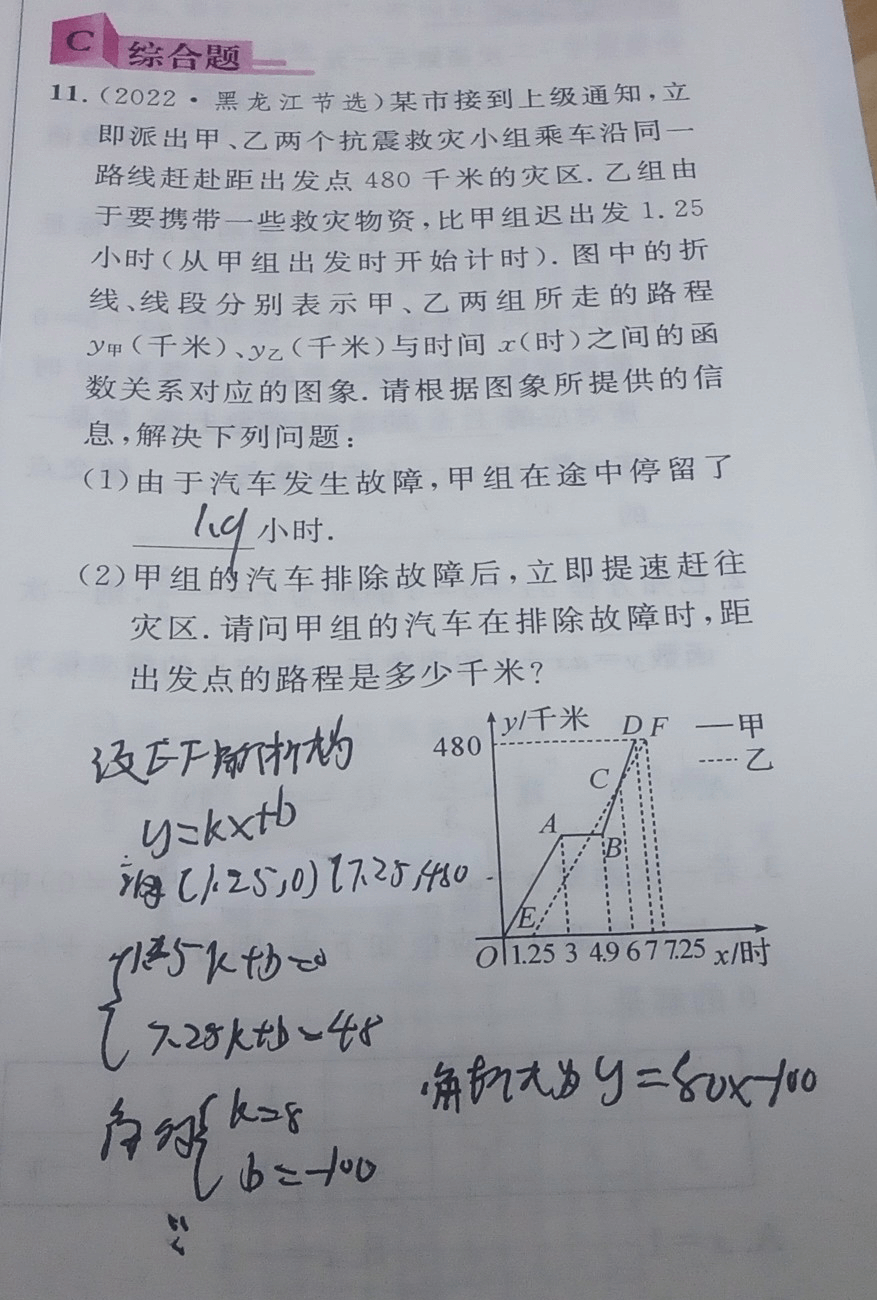 C 综合题
11.(2022·黑龙江节选)某市接到上级通知,立
即派出甲、乙两个抗震救灾小组乘车沿同一
路线赶赴距出发点 480 千米的灾区. 乙组由
于要携带一些救灾物资,比甲组迟出发 1. 25
小时(从甲组出发时开始计时). 图中的折
线、线段分别表示甲、乙两组所走的路程
y甲(千米)、y乙(千米)与时间 x(时)之间的函
数关系对应的图象. 请根据图象所提供的信
息,解决下列问题:
(1)由于汽车发生故障,甲组在途中停留了
1.9 小时.
(2)甲组的汽车排除故障后,立即提速赶往
灾区. 请问甲组的汽车在排除故障时,距
出发点的路程是多少千米?
设EF解析式为
y=kx+b
(1.25,0)(7.25,480
1.25k+b=0
7.25k+b=48
k=8
b=-100
解析式为y=80x-100
y/千米 D F —甲
480
-----乙
C
A
B
E
O 1.25 3 4.9 6 7 7.25 x/时